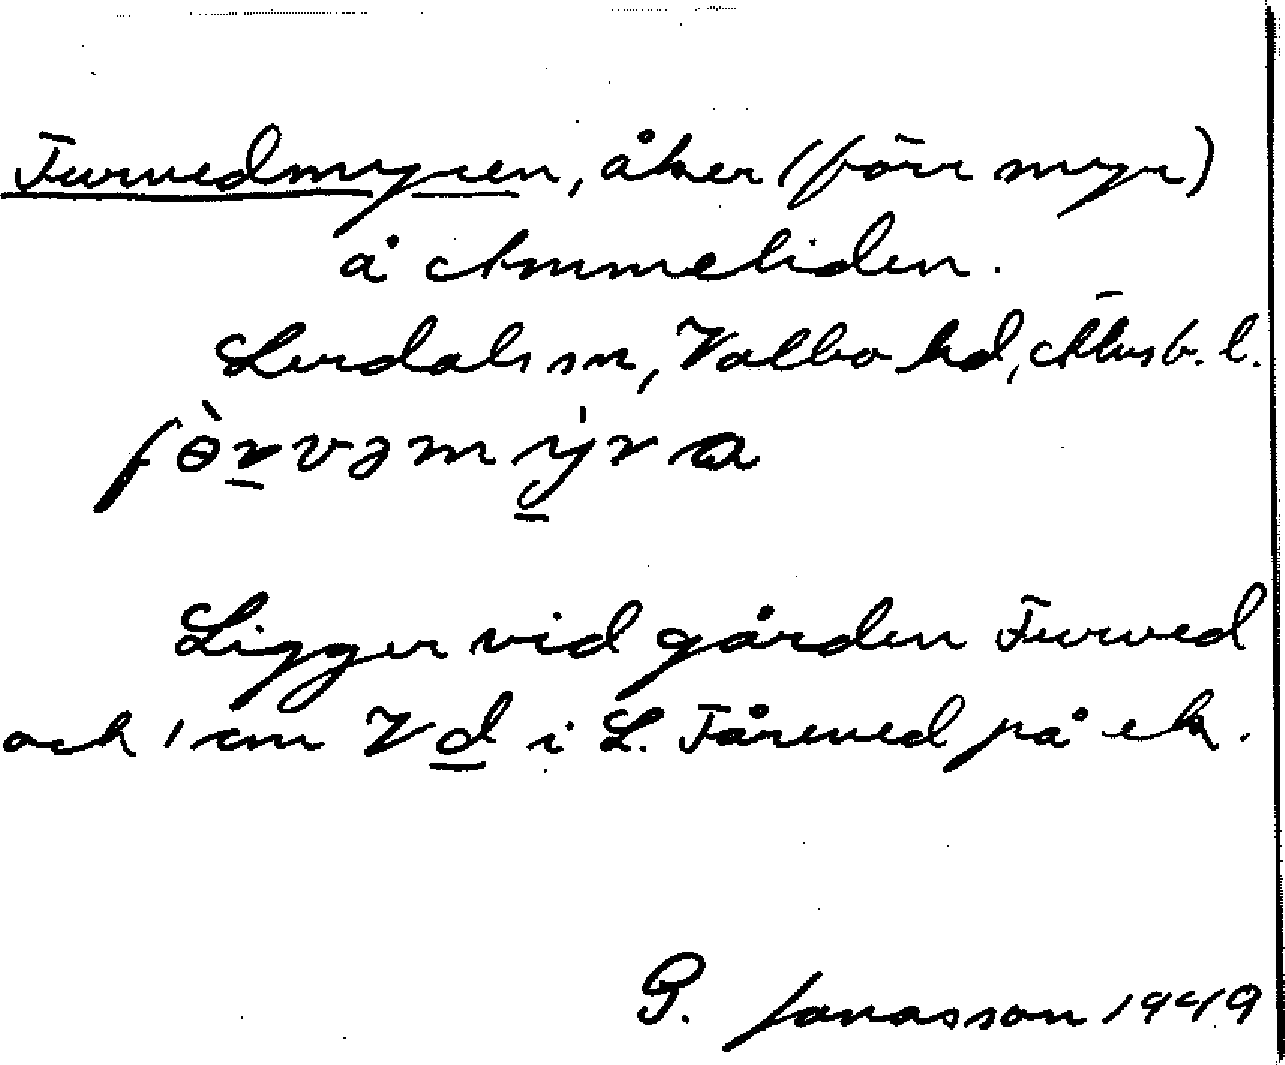 Furvedmyren, åker (förr myr)
å Ammeliden.
Lerdals sn, Valbo hd, Älvsb. l.
fɵ̀rvəmýra
Ligger vid gården Furved
och i om Vd i L. Fårved på ek.
G. Jonasson 1949